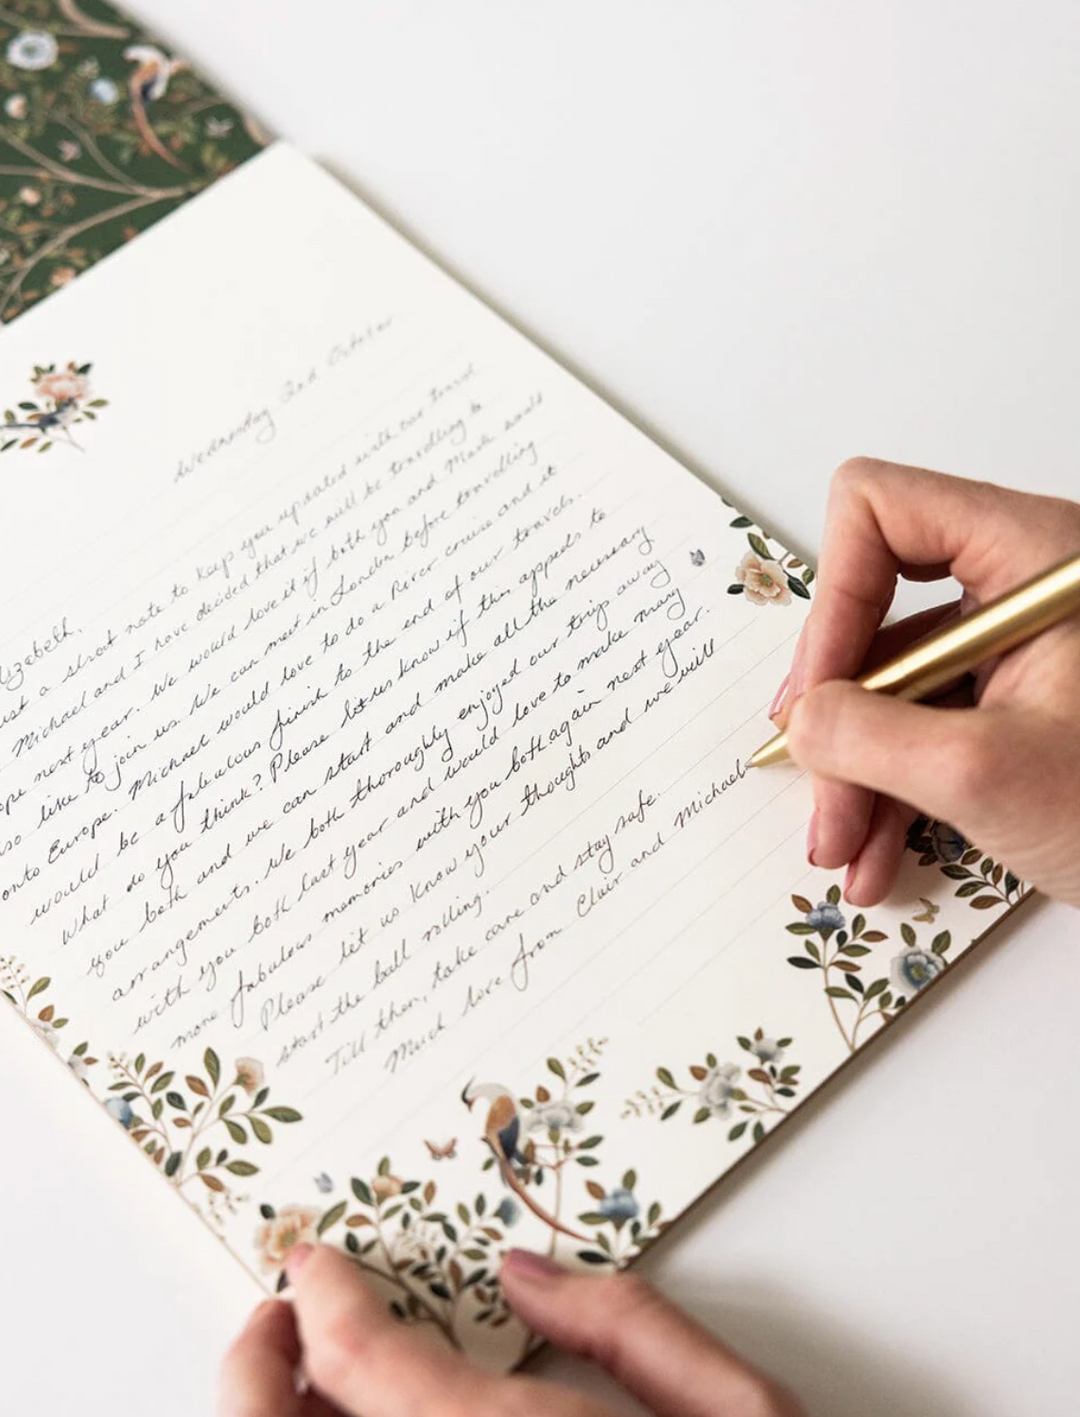 Wednesday 2nd October
lizabeth,
ust a short note to keep you updated with our travel
Michael and I have decided that we will be travelling to
ope next year. We would love it if both you and Mark would
so like to join us. We can meet in London before travelling
onto Europe. Michael would love to do a River cruise and it
would be a fabulous finish to the end of our travels.
What do you think? Please let us know if this appeals to
you both and we can start and make all the necessary
arrangements. We both thoroughly enjoyed our trip away
with you both last year and would love to make many
more fabulous memories with you both again next year.
Please let us know your thoughts and we will
start the ball rolling.
Till then, take care and stay safe.
Much love from Clair and Michael